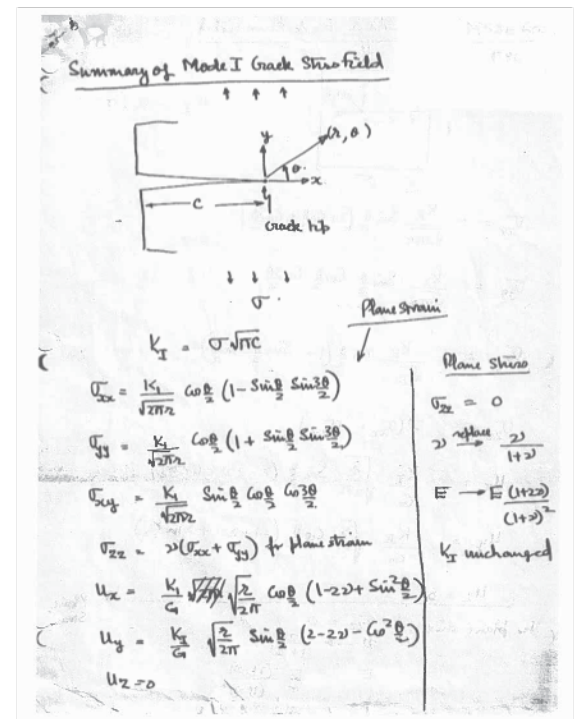 Summary of Mode I Crack Stress field
y
(r, θ)
θ
x
c
Crack tip
σ
Plane strain
K_I = σ√πc
σ_xx = K_I/√2πr Cos θ/2 (1 - Sin θ/2 Sin 3θ/2)
σ_yy = K_I/√2πr Cos θ/2 (1 + Sin θ/2 Sin 3θ/2)
σ_xy = K_I/√2πr Sin θ/2 Cos θ/2 Cos 3θ/2
σ_zz = ν(σ_xx + σ_yy) for plane strain
u_x = K_I/G √r/2π Cos θ/2 (1-2ν + Sin² θ/2)
u_y = K_I/G √r/2π Sin θ/2 (2-2ν - Cos² θ/2)
u_z = 0
Plane stress
σ_zz = 0
ν replace → ν/1+ν
E → E (1+2ν)/(1+ν)²
K_I unchanged